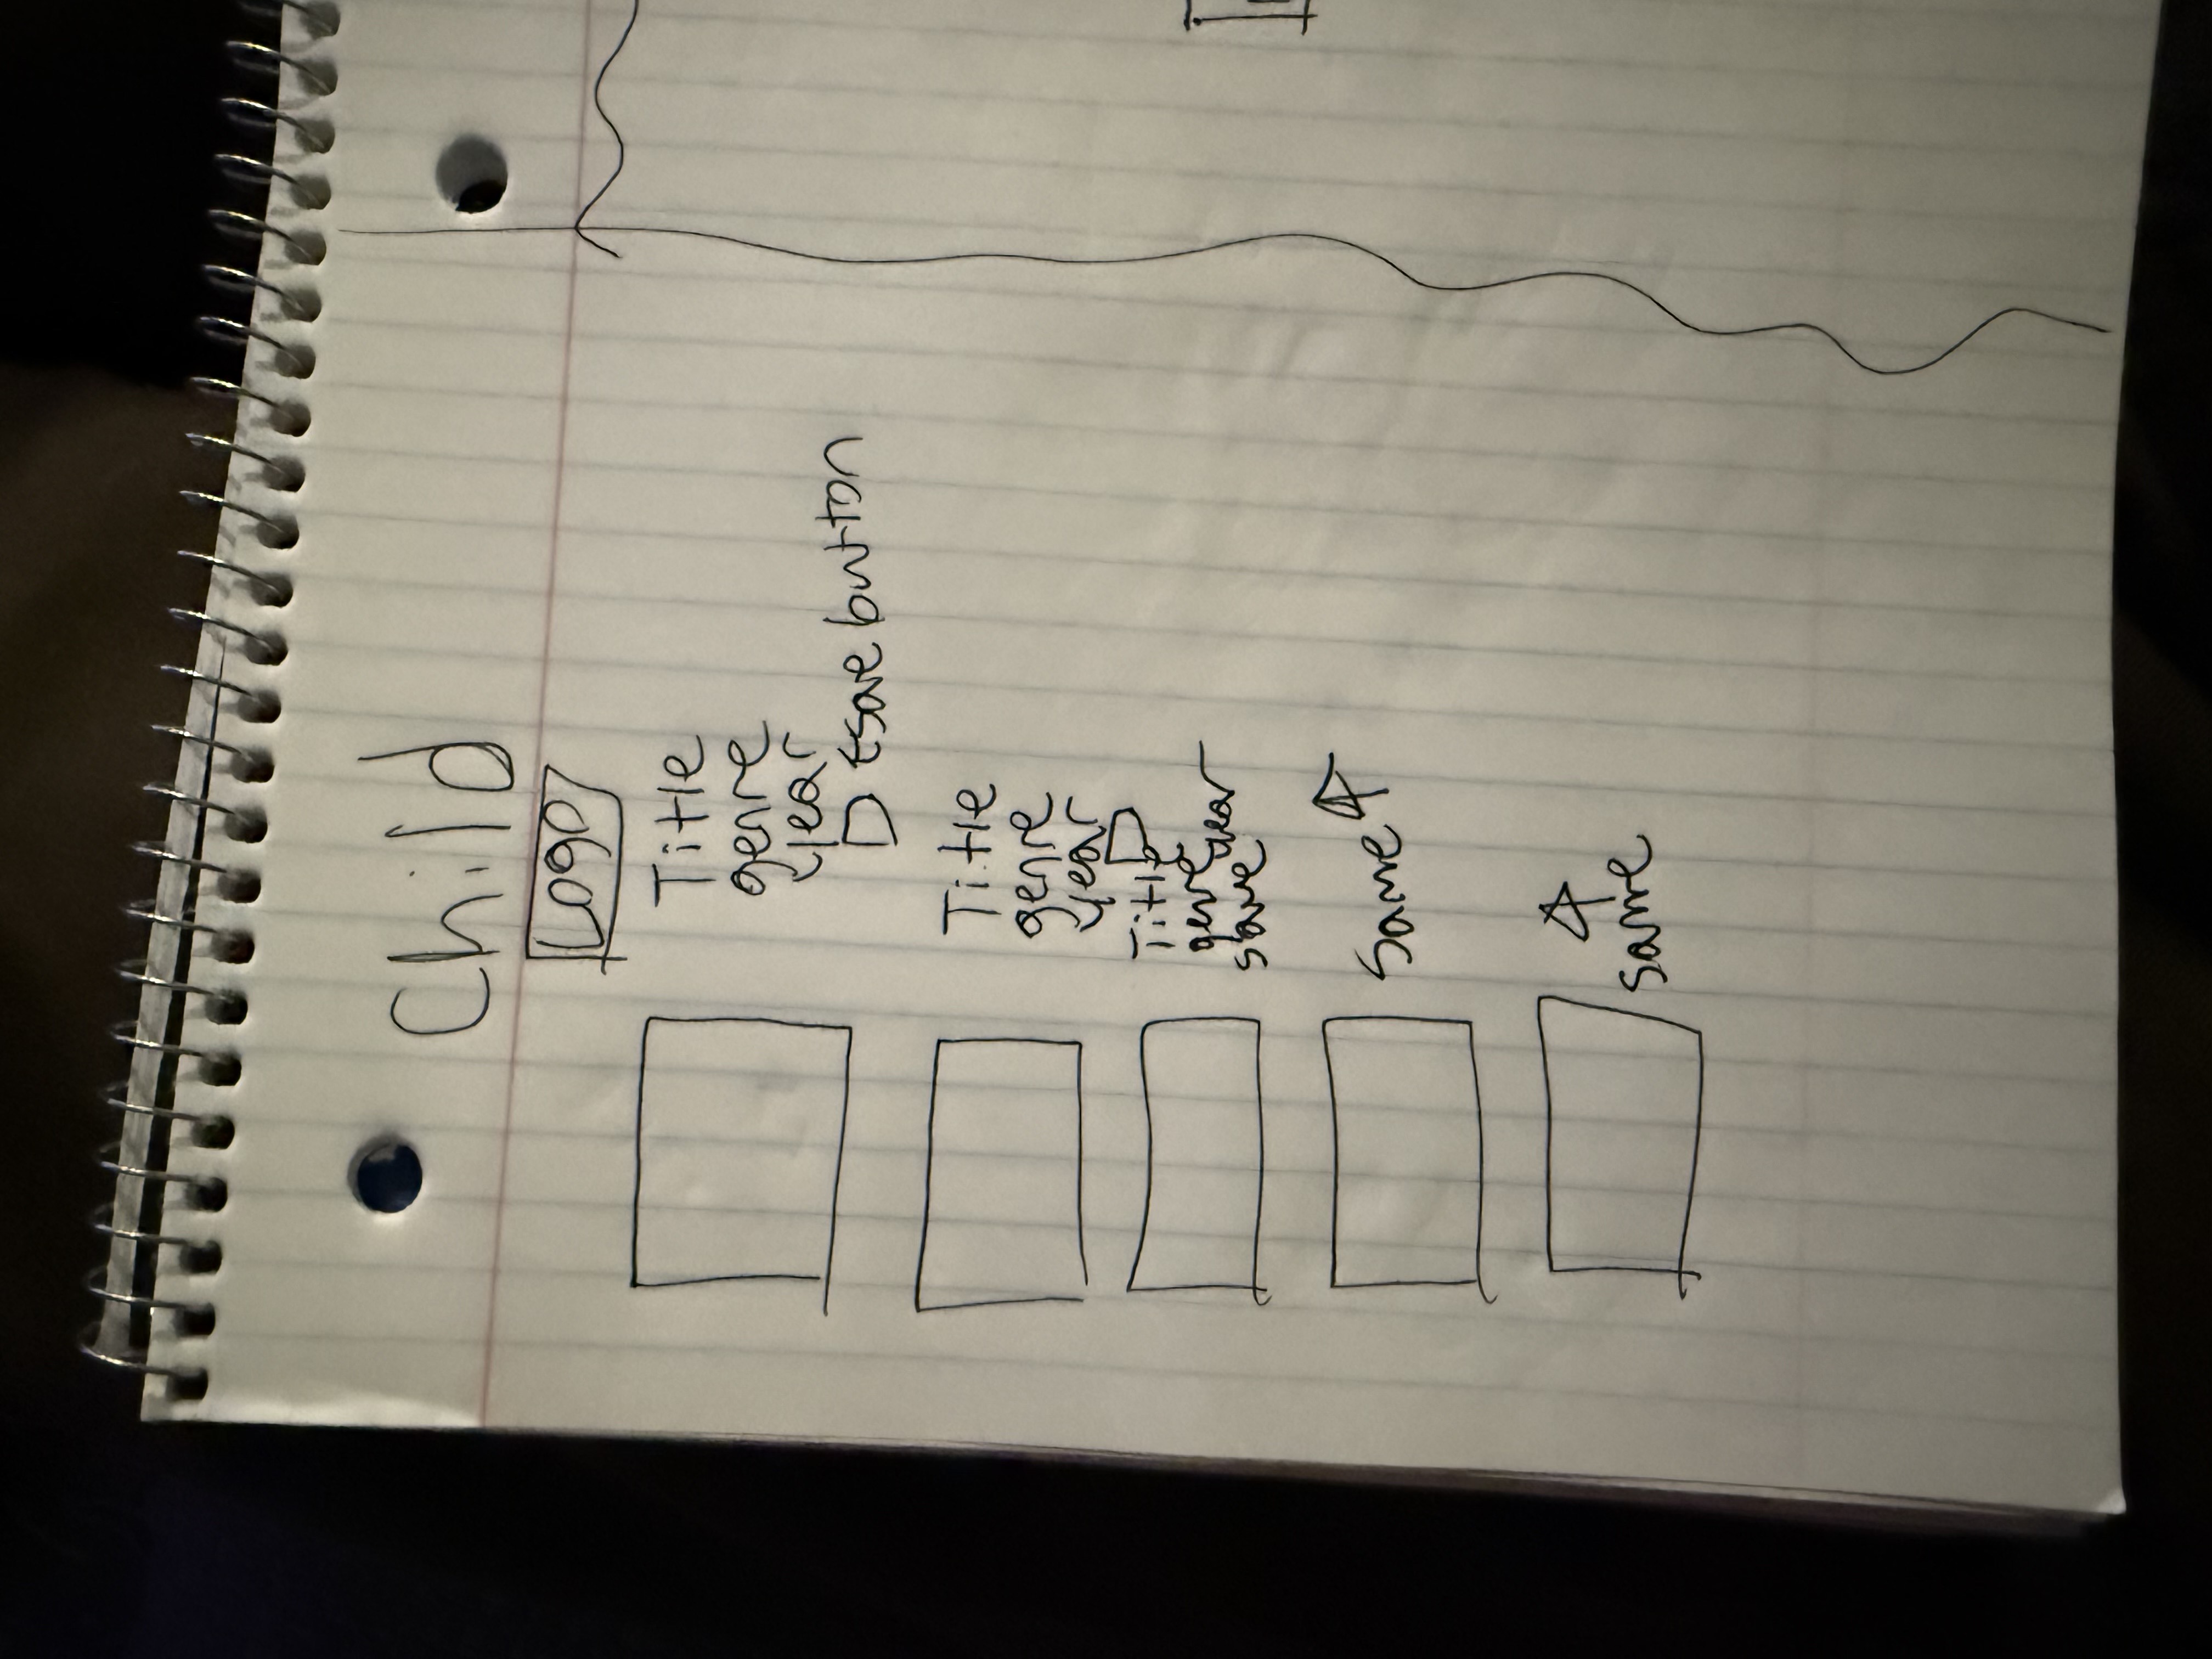 Child
Logo
Title
genre
year
save button
Title
genre
year
Title
genre year
save
Same
same